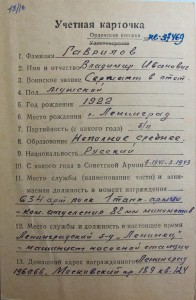 Учетная карточка
1. Фамилия Гаврилов
2. Имя и отчество Владимир Иванович
3. Воинское звание Сержант в отст.
4. Пол мужской
5. Год рождения 1922
6. Место рождения г. Ленинград
7. Партийность (с какого года) б/п
8. Образование Неполное среднее
9. Национальность Русский
10. С какого года в Советской Армии
11. Место службы (наименование части) и занимаемая должность в момент награждения
634 арт. полк 1 танк. армии
ком. отделения 82 мм минометов
12. Место службы и должность в настоящее время
Ленинградский з-д "
машинист насосной станции
13. Домашний адрес награжденного Ленинград
196066, Московский пр. 189 кв. 124